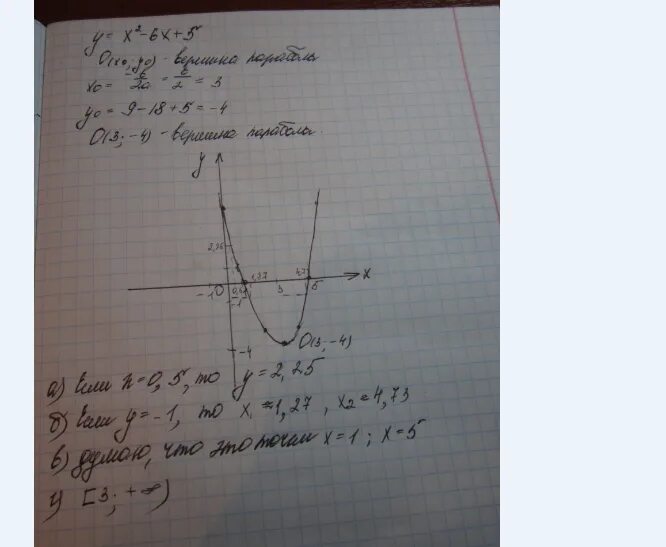 y = x² - 6x + 5
O(x₀, y₀) - вершина параболы
x₀ = -b/2a = 6/2 = 3
y₀ = 9 - 18 + 5 = -4
O(3; -4) - вершина параболы.
y
2,25
1,27 4,73 x
-1 O 0,5 1 3 5
-1
O(3; -4)
-4
а) Если x = 0,5, то y = 2,25
б) Если y = -1, то x₁ ≈ 1,27, x₂ ≈ 4,73
в) думаю, что это точки x = 1; x = 5
г) [3; +∞)